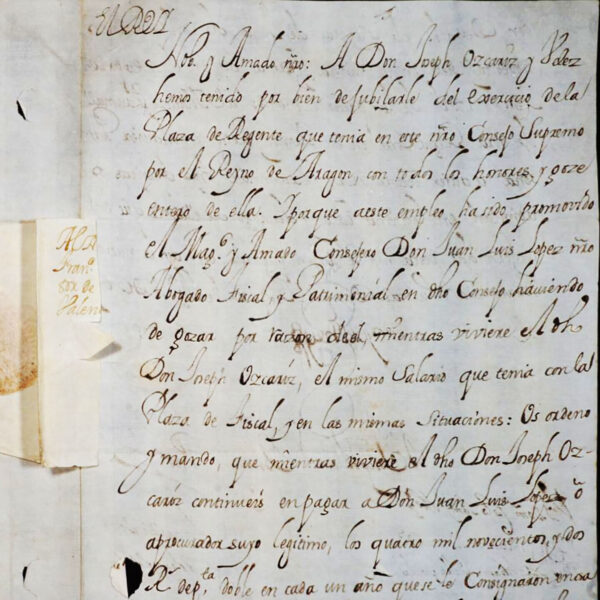 El Rey
Nob. y Amado nro: A Don Joseph Ozcariz y Velez
hemos tenido por bien de jubilarle del exercicio de la
Plaza de Regente que tenia en este nro Consejo Supremo
por el Reyno de Aragon, con todos los honores, y goze
entero de ella. Y porque a este empleo ha sido promovido
el Mag.co y Amado Consejero Don Juan Luis Lopez nro
Abogado Fiscal, y Patrimonial en dho Consejo haviendo
de gozar por razon del, mientras viviere el dho
Don Joseph Ozcariz, el mismo Salario que tenia con la
Plaza de Fiscal, y en las mismas situaciones: Os ordeno
y mando, que mientras viviere el dho Don Joseph Oz-
cariz continueis en pagar a Don Juan Luis Lopez ò
a procurador suyo legitimo, los quatro mil novecientos, y dos
R.s de p.ta doble en cada un año que se le Consignaron en ca
Al A
Fran.o
sor de
Valen